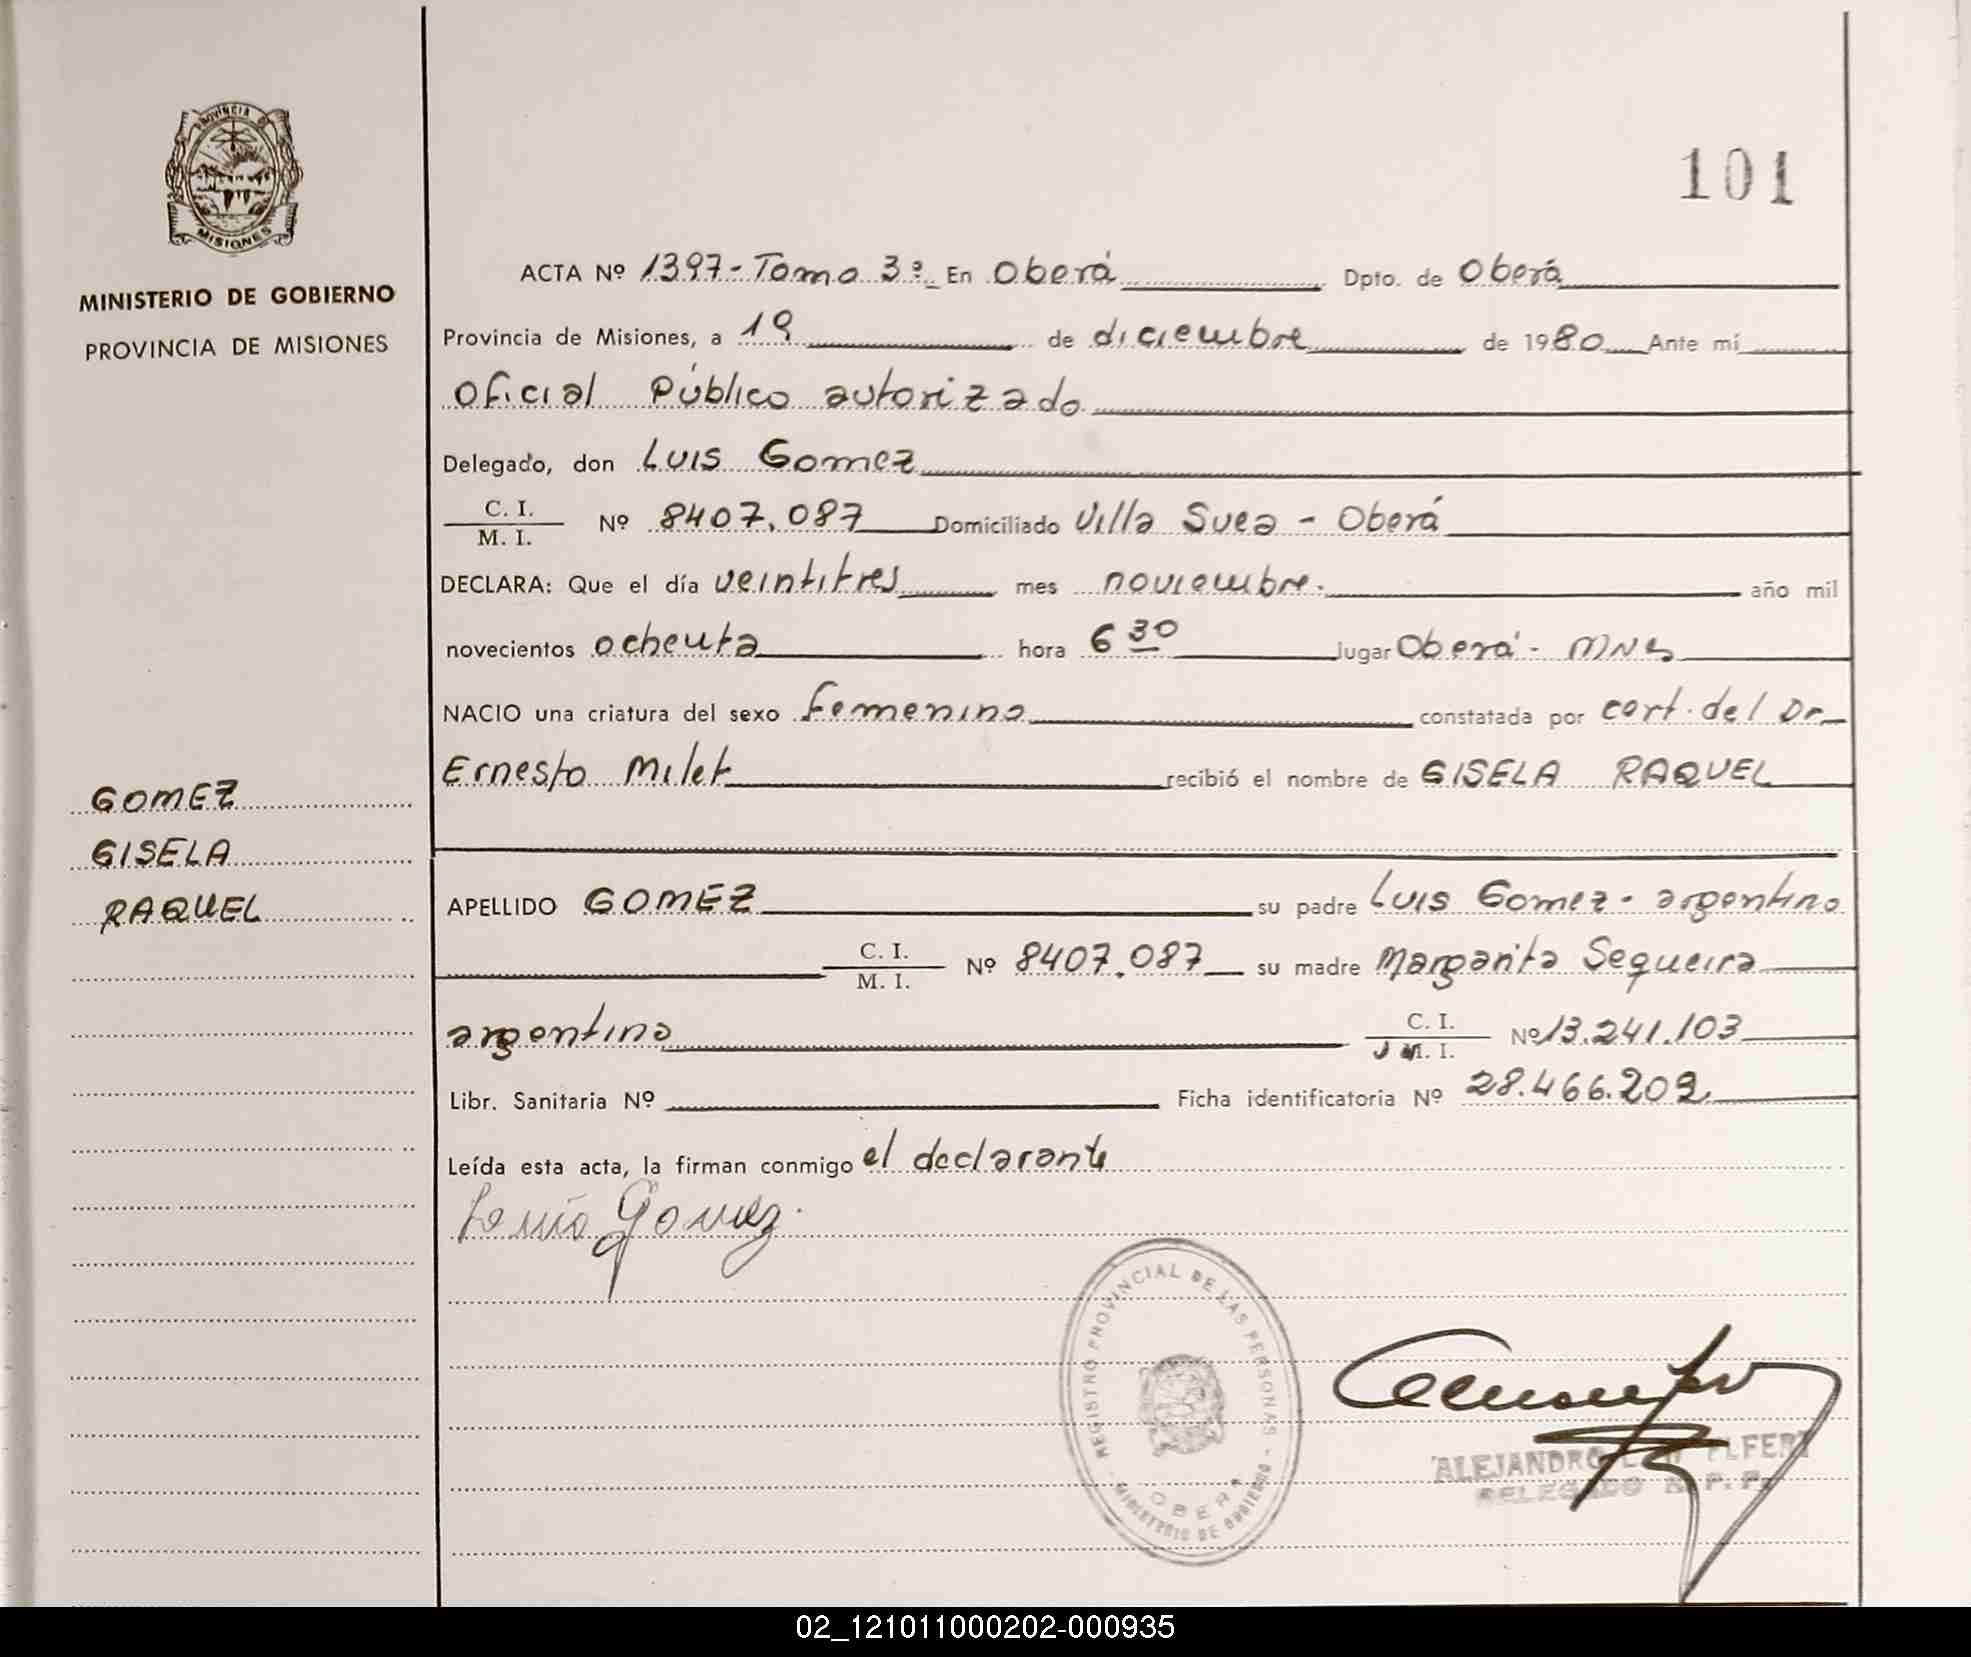 PROVINCIA DE
MISIONES
MINISTERIO DE GOBIERNO
PROVINCIA DE MISIONES
GOMEZ
GISELA
RAQUEL
101
ACTA Nº 1397 - Tomo 3º. En Oberá Dpto. de Oberá
Provincia de Misiones, a 19 de diciembre de 1980 Ante mí
Oficial Público autorizado
Delegado, don Luis Gomez
C. I.
M. I. Nº 8407.087 Domiciliado Villa Suea - Oberá
DECLARA: Que el día veintitres mes noviembre. año mil
novecientos ochenta hora 6 30 lugar Oberá - MNES
NACIO una criatura del sexo femenino constatada por cert. del Dr
Ernesto Milet recibió el nombre de GISELA RAQUEL
APELLIDO GOMEZ su padre Luis Gomez - argentino
C. I.
M. I. Nº 8407.087 su madre Margarita Sequeira
argentina C. I.
M. I. Nº 13.241.103
Libr. Sanitaria Nº Ficha identificatoria Nº 28.466.209
Leída esta acta, la firman conmigo el declarante
Luis Gomez
REGISTRO PROVINCIAL DE LAS PERSONAS - MINISTERIO DE GOBIERNO
OBERA
ALEJANDRO
DELEGADO R. P. P.
02_121011000202-000935